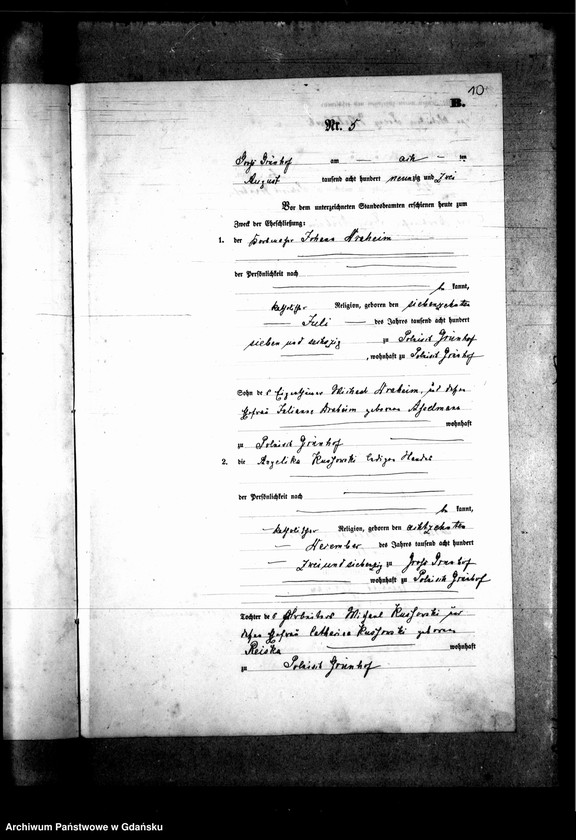 10
B.
Nr. 5
Groß Grünhof am — acht — ten
August tausend acht hundert neunzig und zwei
Vor dem unterzeichneten Standesbeamten erschienen heute zum
Zweck der Eheschließung:
1. der Johann
der Persönlichkeit nach
be kannt,
katholischer Religion, geboren den siebenzehnten
Juli des Jahres tausend acht hundert
sieben und sechszig zu Polnisch Grünhof
, wohnhaft zu Polnisch Grünhof
Sohn des Eigenthümers Michael und dessen
Ehefrau Juliane geborene
wohnhaft
zu Polnisch Grünhof
2. die Angelika ledigen Standes
der Persönlichkeit nach
be kannt,
katholischer Religion, geboren den achtzehnten
des Jahres tausend acht hundert
zwei und siebenzig zu Groß Grünhof
wohnhaft zu Polnisch Grünhof
Tochter des Arbeiters Michael und
dessen Ehefrau Catharina geborene
wohnhaft
zu Polnisch Grünhof
Archiwum Państwowe w Gdańsku